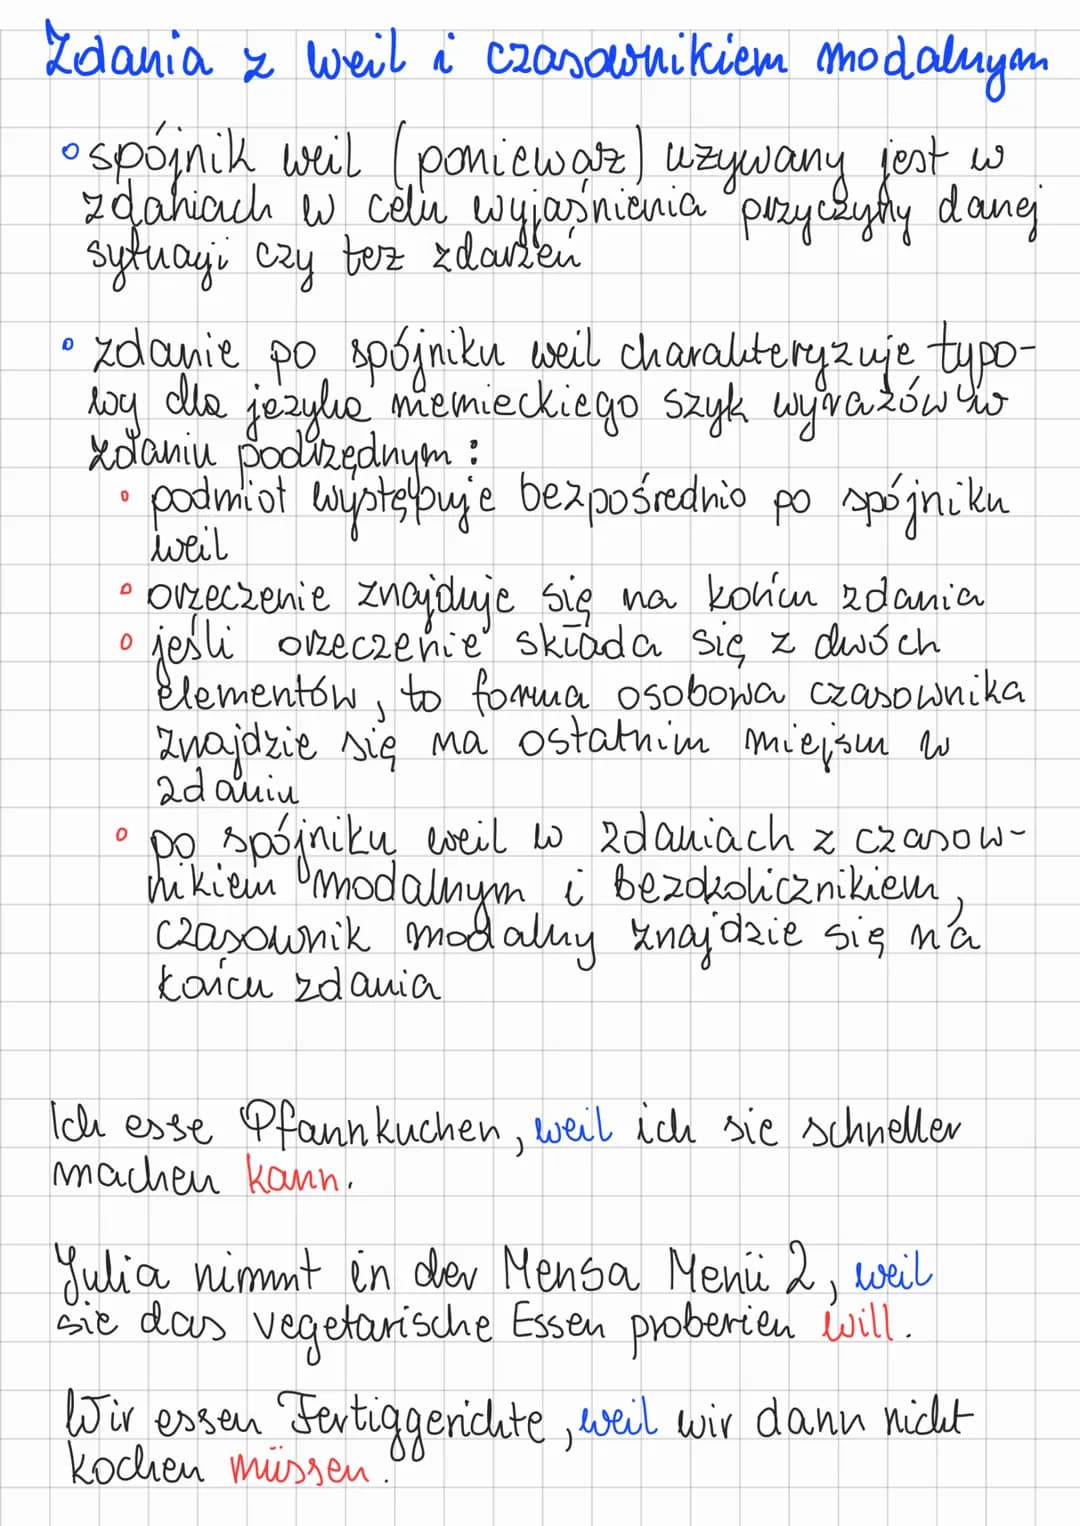 Zdania z weil i czasownikiem modalnym
spójnik weil (ponieważ) używany jest w
zdaniach w celu wyjaśnienia przyczyny danej
sytuacji czy też zdarzeń
zdanie po spójniku weil charakteryzuje typo-
wy dla języka niemieckiego szyk wyrazów w
zdaniu podrzędnym:
podmiot występuje bezpośrednio po spójniku
weil
orzeczenie znajduje się na końcu zdania
jeśli orzeczenie składa się z dwóch
elementów, to forma osobowa czasownika
znajdzie się na ostatnim miejscu w
zdaniu
po spójniku weil w zdaniach z czasow-
nikiem modalnym i bezokolicznikiem,
czasownik modalny znajdzie się na
końcu zdania
Ich esse Pfannkuchen, weil ich sie schneller
machen kann.
Julia nimmt in der Mensa Menü 2, weil
sie das vegetarische Essen proberien will.
Wir essen Fertiggerichte, weil wir dann nicht
kochen müssen.